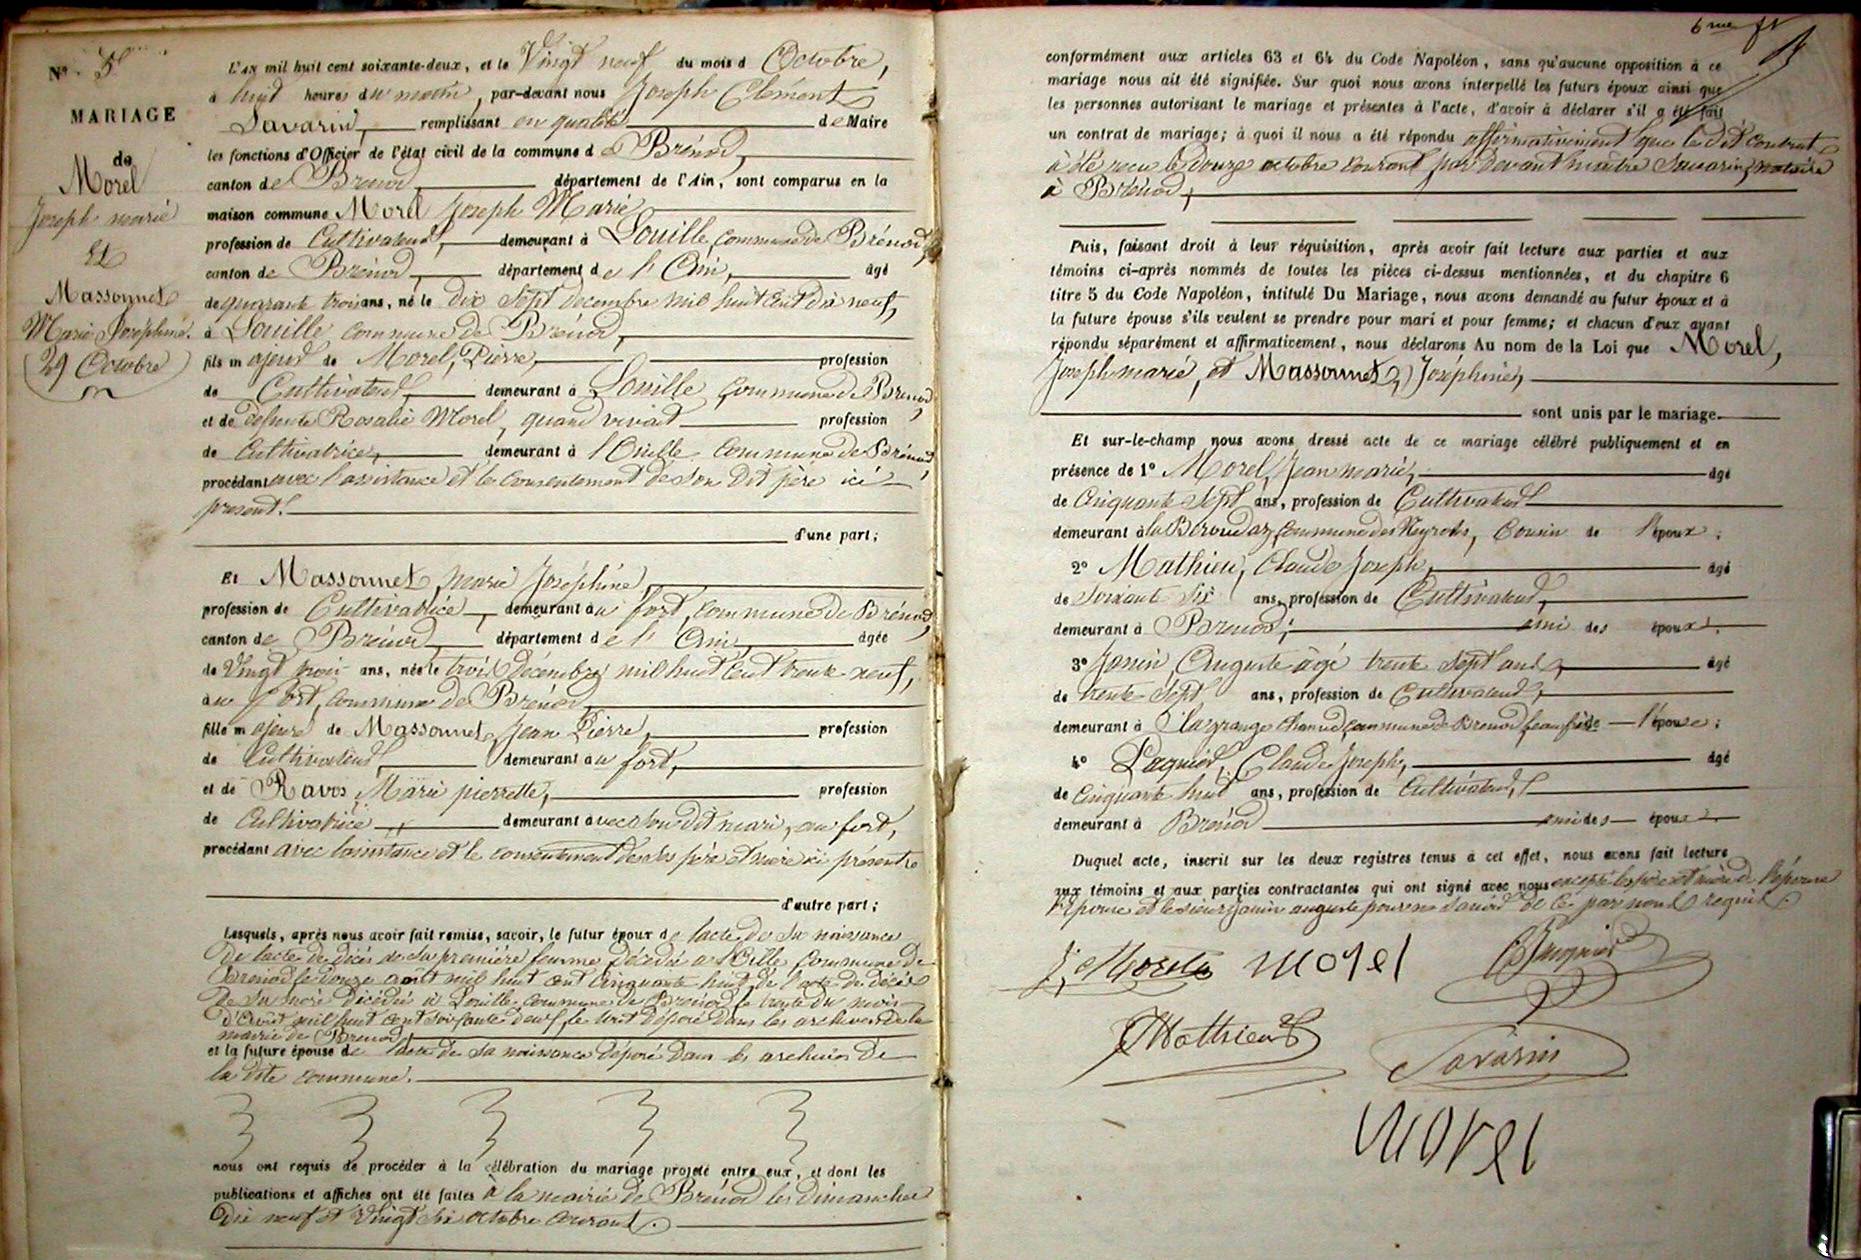 N° 5
MARIAGE
de
Morel
Joseph marie
Et
Massonnet
Marie Joséphine.
29 Octobre
L'AN mil huit cent soixante-deux, et le Vingt neuf du mois d Octobre,
à huit heures du matin, par-devant nous Joseph Clément
Savarin, remplissant en qualité de Maire
les fonctions d'Officier de l'état civil de la commune d e Brénod,
canton de Brénod, département de l'Ain, sont comparus en la
maison commune Morel Joseph Marie,
profession de Cultivateur, demeurant à Louille commune de Brénod,
canton de Brénod, département de l'Ain, âgé
de quarante trois ans, né le dix sept decembre mil huit cent dix neuf,
à Louille commune de Brénod,
fils majeur de Morel, Pierre, profession
de Cultivateur, demeurant à Louille, commune de Brénod,
et de defunte Rosalie Morel, quand vivait profession
de Cultivatrice, demeurant à l'Ouille commune de Brénod,
procédant avec l'assistance et le consentement de son dit père ici
present.
d'une part;
Et Massonnet, marie Joséphine,
profession de Cultivatrice, demeurant au fort, commune de Brénod,
canton de Brénod, département de l'Ain, âgée
de Vingt trois ans, née le trois décembre mil huit cent trente neuf,
au fort, commune de Brénod,
fille majeure de Massonnet, Jean Pierre, profession
de Cultivateur, demeurant au fort,
et de Ravos, Marie pierrette, profession
de Cultivatrice demeurant avec son dit mari, au fort,
procédant avec l'assistance et le consentement de ses père et mère ici présents
d'autre part;
Lesquels, après nous avoir fait remise, savoir, le futur époux de l'acte de sa naissance
de l'acte de décès de sa première femme décédée à l'Ouille, commune de
Brénod le douze août mil huit cent cinquante huit, de l'acte de décès
de sa mère décédée à Louille commune de Brénod le trente du mois
d'Août mil huit cent soixante deux, le tout déposé dans les archives de la
mairie de Brénod
et la future épouse de l'acte de sa naissance déposé dans les archives de
la dite commune.
nous ont requis de procéder à la célébration du mariage projeté entre eux, et dont les
publications et affiches ont été faites à la mairie de Brénod les dimanches
dix neuf et vingt six octobre courant.
6me ft
conformément aux articles 63 et 64 du Code Napoléon, sans qu'aucune opposition à ce
mariage nous ait été signifiée. Sur quoi nous avons interpellé les futurs époux ainsi que
les personnes autorisant le mariage et présentes à l'acte, d'avoir à déclarer s'il a été fait
un contrat de mariage; à quoi il nous a été répondu affirmativement que le dit contrat
à été recu le douze octobre courant par devant maitre Savarin, notaire
à Brénod,
Puis, faisant droit à leur réquisition, après avoir fait lecture aux parties et aux
témoins ci-après nommés de toutes les pièces ci-dessus mentionnées, et du chapitre 6
titre 5 du Code Napoléon, intitulé Du Mariage, nous avons demandé au futur époux et à
la future épouse s'ils veulent se prendre pour mari et pour femme; et chacun d'eux ayant
répondu séparément et affirmativement, nous déclarons Au nom de la Loi que Morel,
Joseph marie, et Massonnet, Joséphine,
sont unis par le mariage.
Et sur-le-champ nous avons dressé acte de ce mariage célébré publiquement et en
présence de 1° Morel, Jean marie, âgé
de Cinquante Sept ans, profession de Cultivateur
demeurant à la commune des Neyrolles, Cousin de l'époux;
2° Mathieu, Claude Joseph, âgé
de Soixante Six ans, profession de Cultivateur,
demeurant à Brénod; ami des époux.
3° Janin Auguste âgé trente sept ans, âgé
de trente Sept ans, profession de Cultivateur,
demeurant à commune de Brénod, beau frère l'épouse;
4° Paquier, Claude Joseph, âgé
de Cinquante huit ans, profession de Cultivateur,
demeurant à Brénod ami des époux.
Duquel acte, inscrit sur les deux registres tenus à cet effet, nous avons fait lecture
aux témoins et aux parties contractantes qui ont signé avec nous excepté les père et mère de l'épouse
l'épouse et le sieur Janin auguste pour ne savoir de ce par nous requis.
J. Morel morel
CJ Paquier
J Mathieu
Savarin
morel